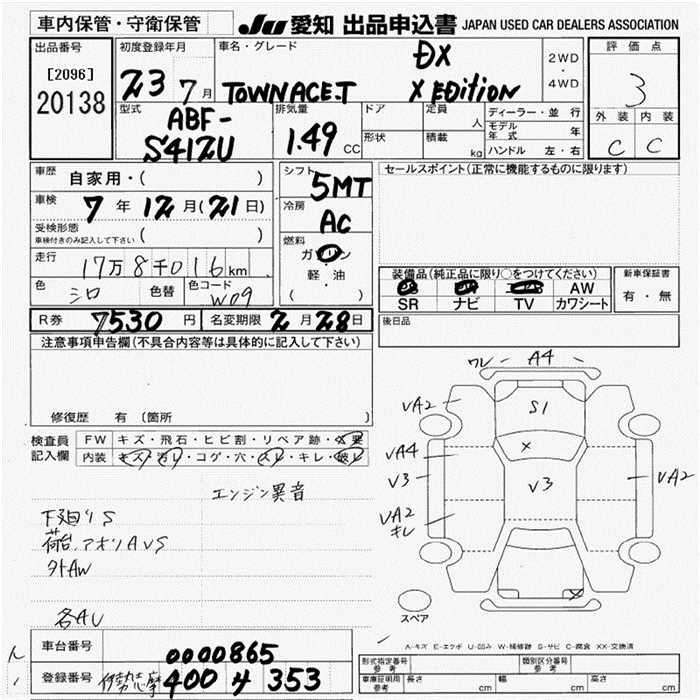 車内保管・守衛保管
JU 愛知 出品申込書 JAPAN USED CAR DEALERS ASSOCIATION
出品番号
[2096]
20138
初度登録年月
23年7月
車名・グレード
TOWNACE.T
DX
X EDITION
2WD
・
4WD
評価点
3
外装 内装
C C
型式
ABF-
S412U
排気量
1.49 CC
ドア
形状
定員
人
積載
kg
ディーラー・並行
モデル年式 年
ハンドル 左・右
車歴
自家用・( )
車検
7年12月(21日)
受検形態
車検付きのみ記入して下さい ( )
走行
17万8千016km
色
シロ
色替
色コード
W09
シフト
5MT
冷房
AC
燃料
ガソリン
軽・油
( )
セールスポイント(正常に機能するものに限ります)
装備品(純正品に限り○をつけてください)
AW
SR ナビ TV カワシート
新車保証書
有・無
後日品
R券 7530円
名変期限 2月28日
注意事項申告欄(不具合内容等は具体的に記入して下さい)
修復歴 有〔箇所
検査員
記入欄
FW キズ・飛石・ヒビ割・リペア跡・X要
内装 キズ・汚レ・コゲ・穴・スレ・キレ・破レ
エンジン異音
下廻りS
荷台.アオリAVS
外AW
各AU
ワレ - A4 -
VA2
S1
VA4
X
V3
V3
VA2
VA2
キレ
X
スペア
A-キズ E-エクボ U-凹み W-補修跡 S-サビ C-腐食 XX-交換済
車台番号
0000865
登録番号
伊勢志摩 400 サ 353
形式指定番号
参考
類別区分番号
参考
車庫証明用
参考
長さ cm
幅 cm
高さ cm